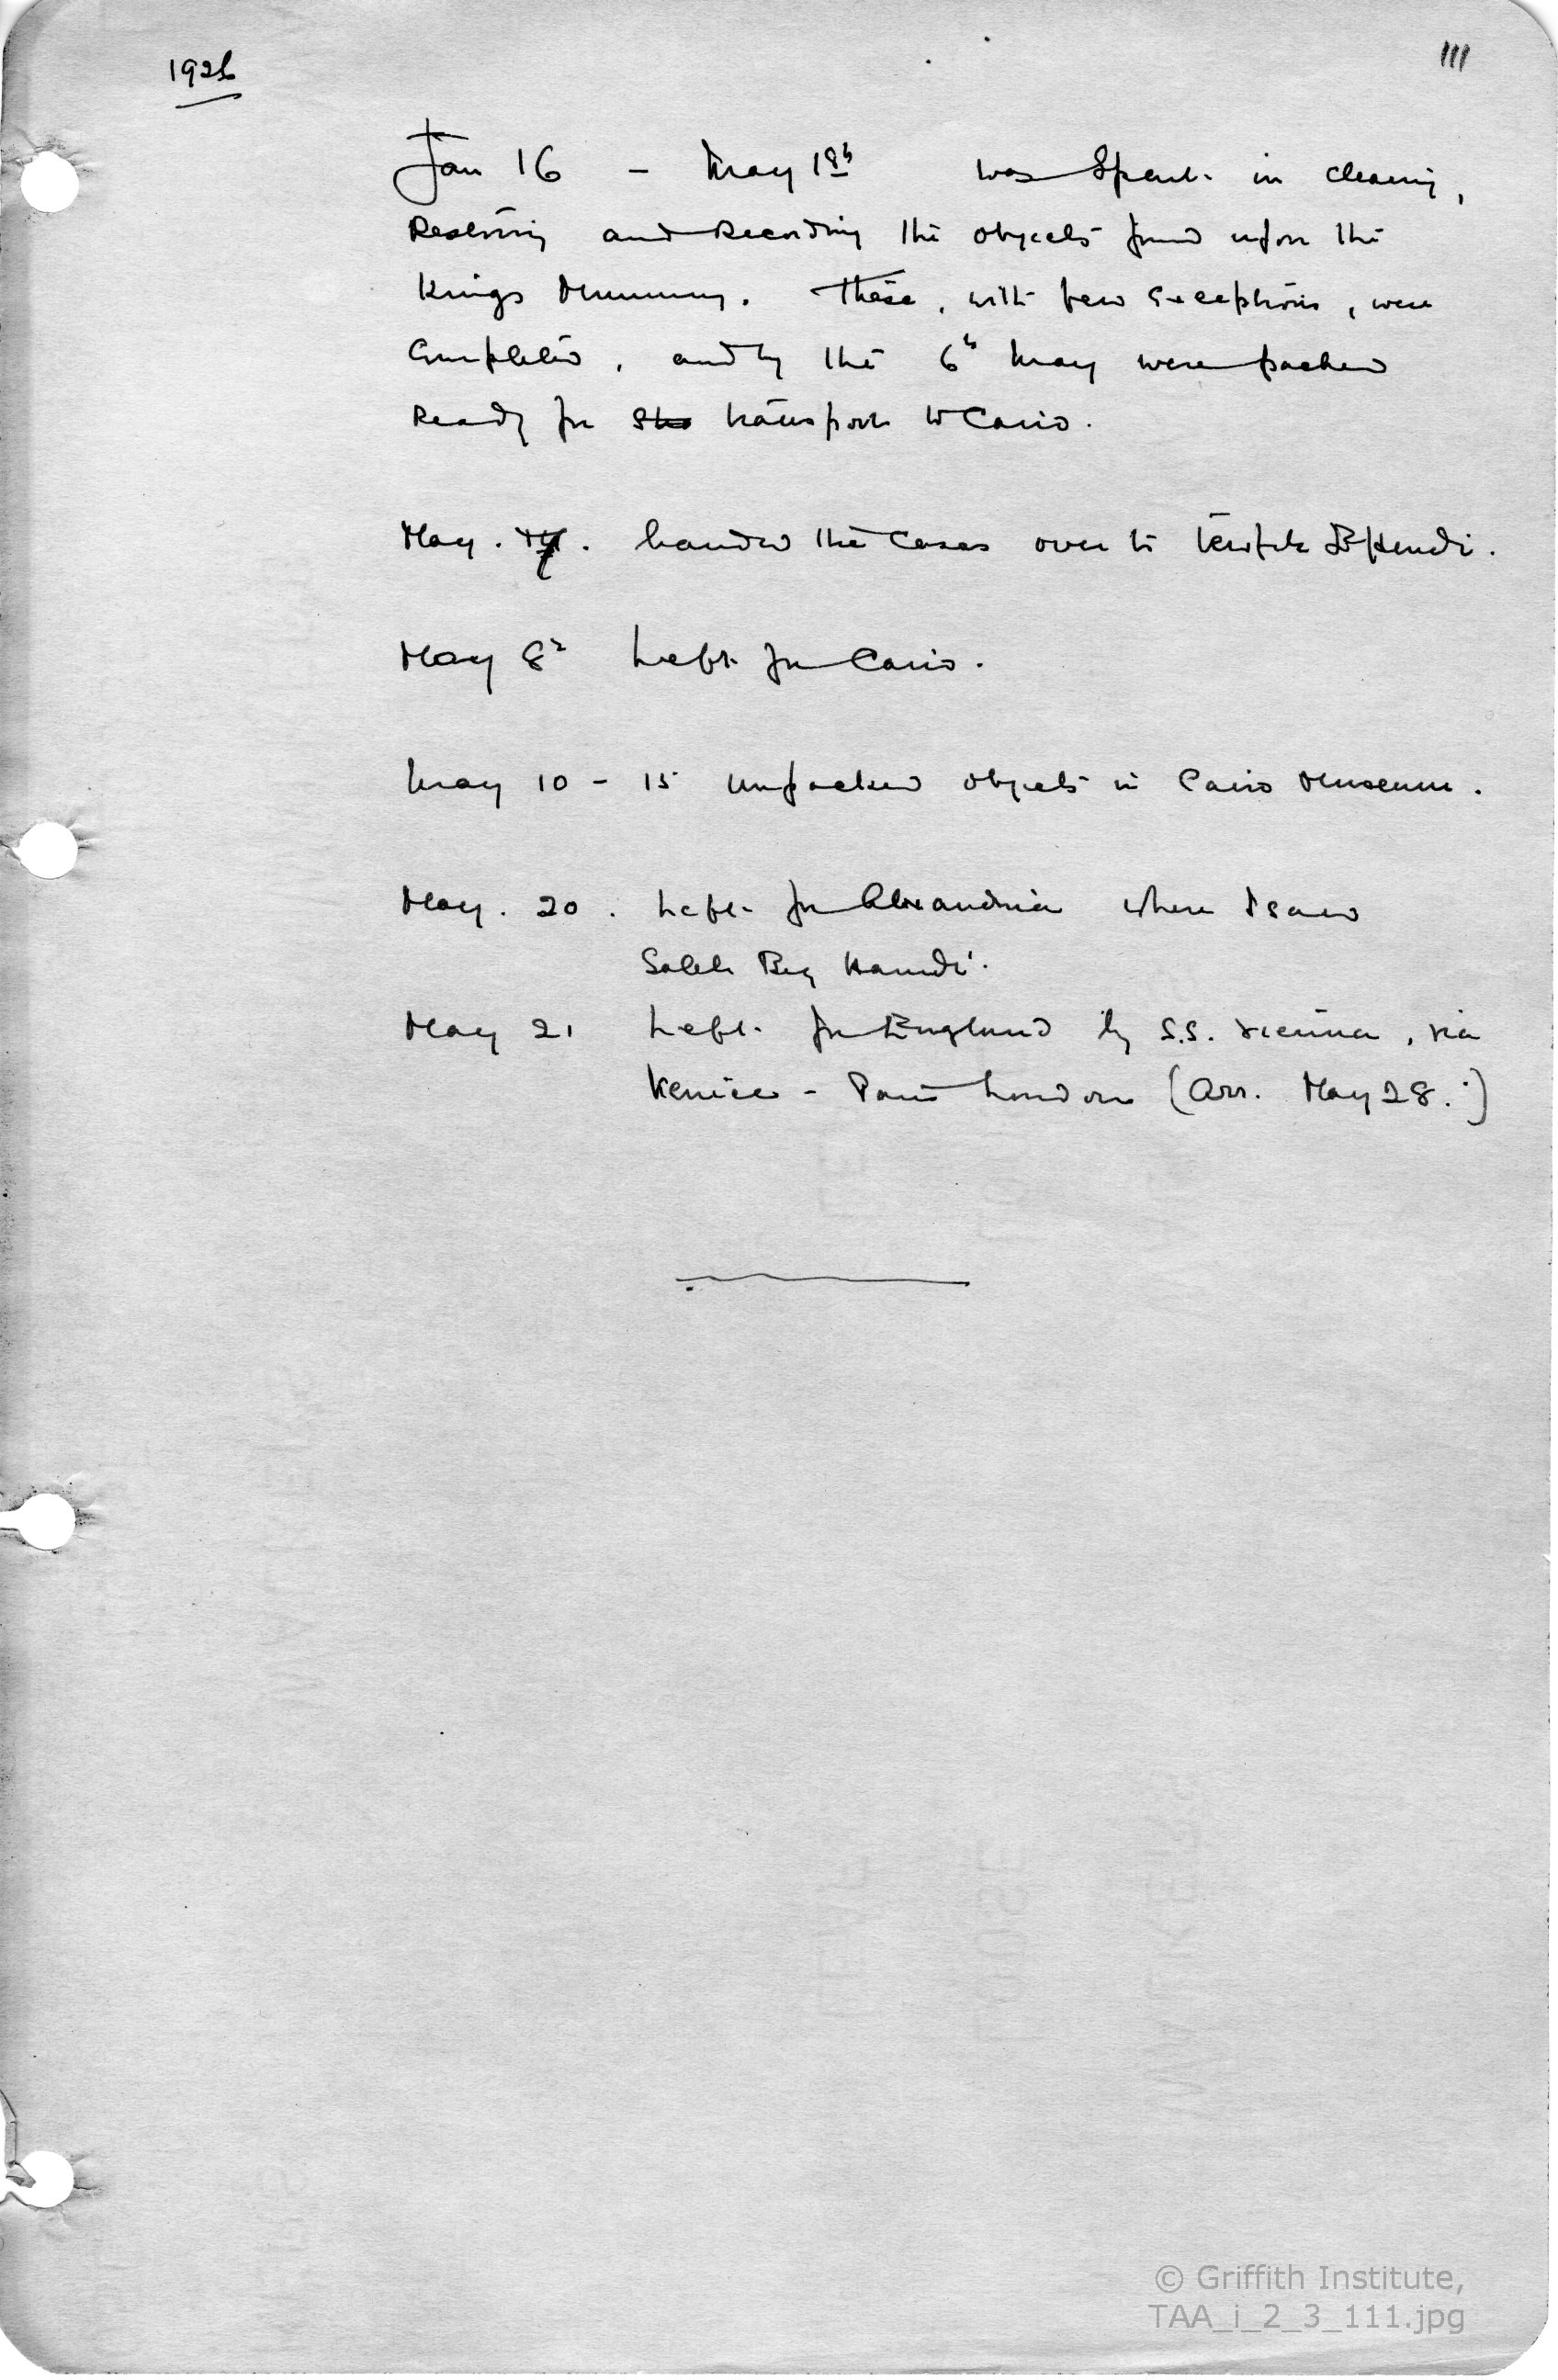 1926
111
Jan 16 - May 1st was spent in cleaning,
Restoring and Recording the objects found upon the
Kings Mummy. These, with few exceptions, were
Completed, and by the 6th May were packed
Ready for transport to Cairo.
May. 7. handed the Cases over to Tewfik Effendi.
May 8th Left for Cairo.
May 10 - 15 Unpacked objects in Cairo Museum.
May. 20. Left for Alexandria where I saw
Saleh Bey Hamdi.
May 21 Left for England by S.S. Vienna, via
Venice - Paris London (Arr. May 28.)
© Griffith Institute,
TAA_i_2_3_111.jpg